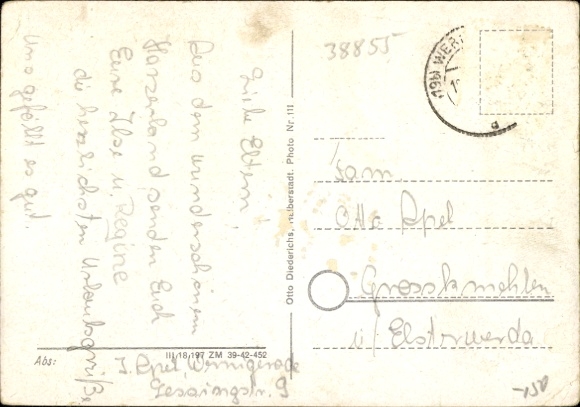 38855
19b) WER
d
Liebe Eltern!
Aus dem wunderschönen
Harzerland senden Euch
Eure Ilse u. Regine
die herzlichsten Urlaubsgrüße,
uns gefällt es gut
Otto Diederichs, Halberstadt. Photo Nr. 111
Fam.
Otto Apel
Grosskmehlen
ü/ Elsterwerda
III/18/197 ZM 39-42-452
Abs: I. Apel, Wernigerode
Lessingstr. 9
-,50